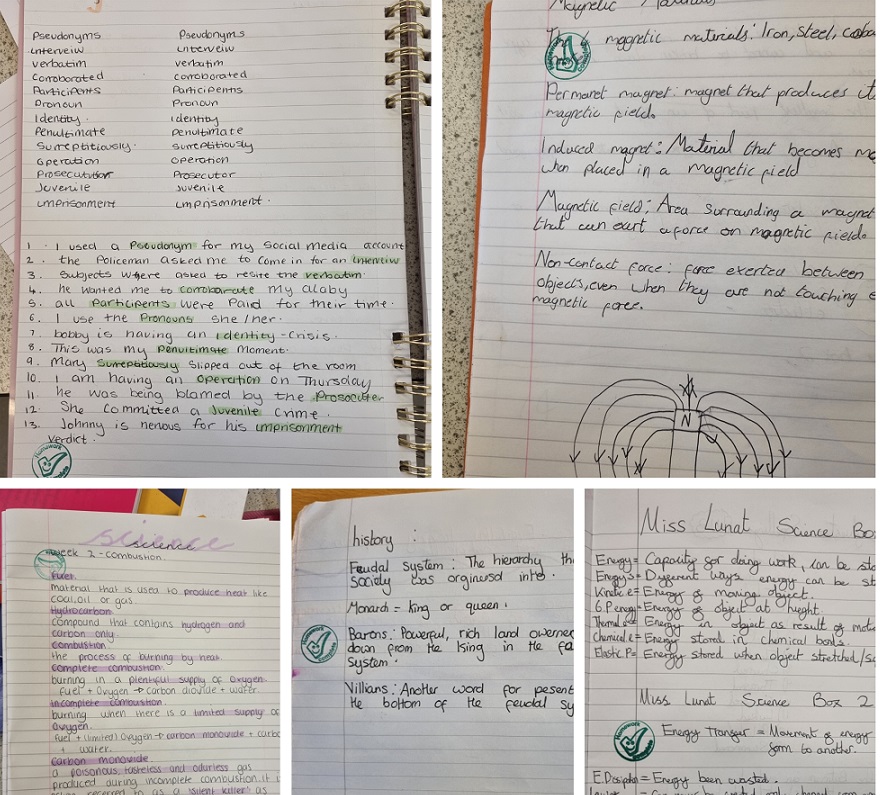 Pseudonyms Pseudonyms
interveiw interveiw
verbatim verbatim
corroborated corroborated
Participents Participents
Pronoun Pronoun
Identity. identity
Penultimate Penultimate
Surreptitiously. Surreptitiously
operation operation
Prosecutution Prosecutor
Juvenile Juvenile
imprisonment imprisonment.
1. I used a Pseudonym for my Social media account
2. the Policeman asked me to come in for an interveiw
3. subjects where asked to resite the verbatim.
4. he wanted me to corroborate my alaby
5. all Participents were Paid for their time.
6. I use the Pronouns she/her.
7. bobby is having an identity-crisis.
8. This was my Penultimate Moment.
9. Mary Surreptitiously slipped out of the room
10. I am having an operation on Thursday
11. he was being blamed by the Prosocuter
12. She committed a Juvenile crime.
13. Johnny is nervous for his imprisonment
verdict.
Homework
Magnetic
magnetic materials: Iron, steel, coba
Permaret magnet: magnet that produces it
magnetic field.
Induced magnet: Material that becomes ma
when placed in a magnetic field
Magnetic field: Area surrounding a magnet
that can exert a force on magnetic field.
Non-contact force: force exerted between
objects, even when they are not touching
magnetic force.
N
science
science
week 2 - combustion.
Fuel
material that is used to produce heat like
coal, oil or gas.
Hydrocarbon
compound that contains hydrogen and
carbon only.
Combustion.
the process of burning by heat.
complete combustion.
burning in a plentiful supply of oxygen.
fuel + oxygen → carbon dioxide + water.
incomplete combustion.
burning when there is a limited supply of
oxygen.
fuel + (limited) oxygen → carbon monoxide + carbo
+ water.
carbon monoxide.
a poisonous, tasteless and odurless gas
produced during incomplete combustion. it
as a 'silent killer' as
history :
Feudal system : The hierarchy th
Society was orginersd into.
Monarch = king or queen.
Barons: Powerful, rich land owener
down from the king in the fa
system.
Villians: Another word for pesent
the bottom of the feudal sy
Miss Lunat Science Bo
Energy = Capacity for doing work, can be sto
Different ways energy can be st
Kinetic e = Energy of moving object.
G.P energy = Energy of object at height.
Thermal e = Energy in object as result of
Chemical e = Energy stored in chemical bonds.
Elastic P = Energy stored when object stretched/sq
Miss Lunat Science Box 2
Homework
Energy Transfer = Movement of energy
form to another.
= Energy been wasted.